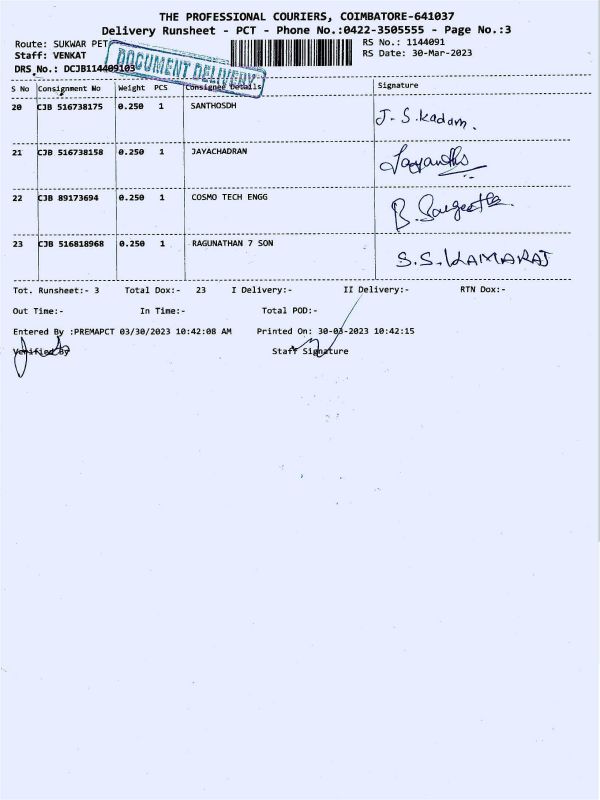 THE PROFESSIONAL COURIERS, COIMBATORE-641037
Delivery Runsheet - PCT - Phone No.:0422-3505555 - Page No.:3
Route: SUKWAR PET
RS No.: 1144091
Staff: VENKAT
RS Date: 30-Mar-2023
DRS No.: DCJB114409103
DOCUMENT DELIVERY
S No Consignment No Weight PCS Consignee Details Signature
20 CJB 516738175 0.250 1 SANTHOSDH J. S. Kadam.
21 CJB 516738158 0.250 1 JAYACHADRAN
22 CJB 89173694 0.250 1 COSMO TECH ENGG B. Sangeetha
23 CJB 516818968 0.250 1 RAGUNATHAN 7 SON S.S. KAMARAJ
Tot. Runsheet:- 3 Total Dox:- 23 I Delivery:- II Delivery:- RTN Dox:-
Out Time:- In Time:- Total POD:-
Entered By :PREMAPCT 03/30/2023 10:42:08 AM Printed On: 30-03-2023 10:42:15
Verified By Staff Signature